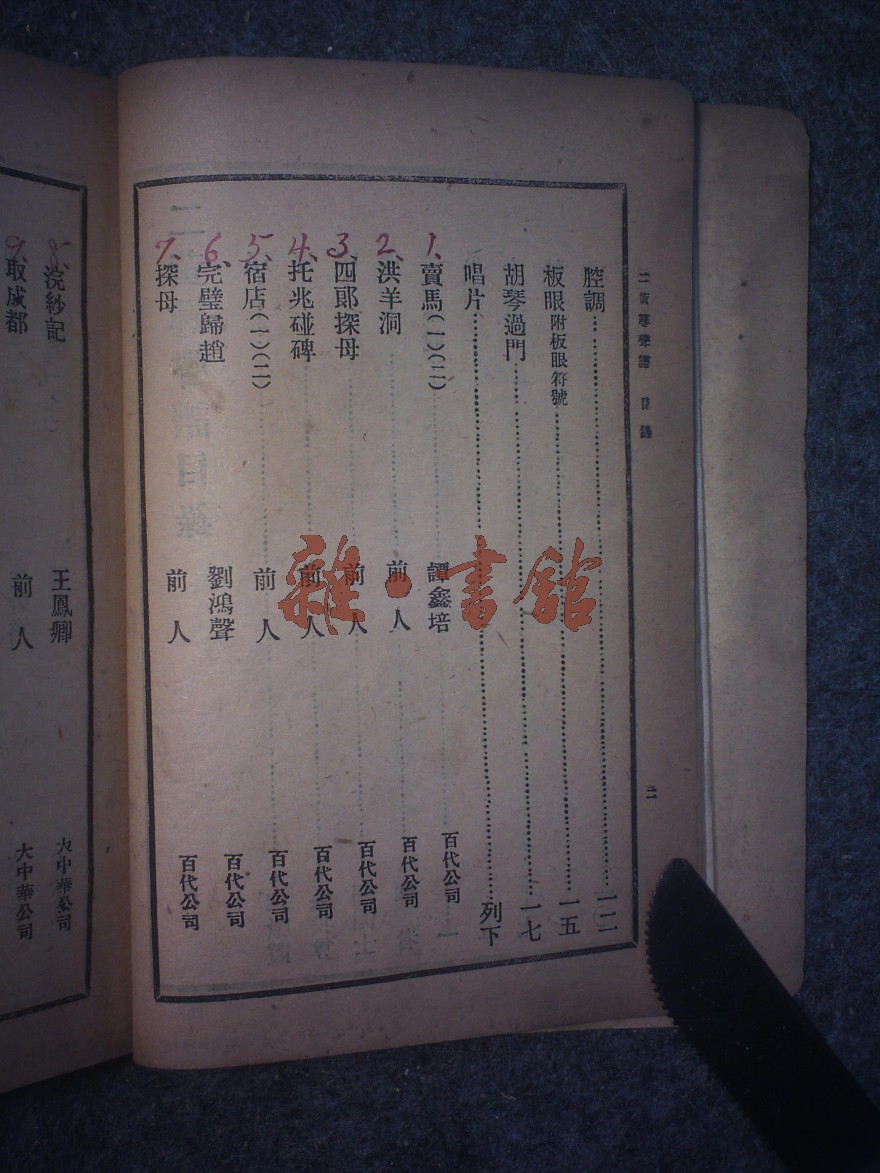 目錄
二
腔調……一二
板眼附板眼符號……一五
胡琴過門……一七
唱片……列下
1、賣馬(一)(二) 譚鑫培 百代公司
2、洪羊洞 前人 百代公司
3、四郎探母 前人 百代公司
4、托兆碰碑 前人 百代公司
5、宿店(一)(二) 前人 百代公司
6、完璧歸趙 劉鴻聲 百代公司
7、探母 前人 百代公司
8、浣紗記 王鳳卿 大中華公司
9、取成都 前人 大中華公司
雜·書館